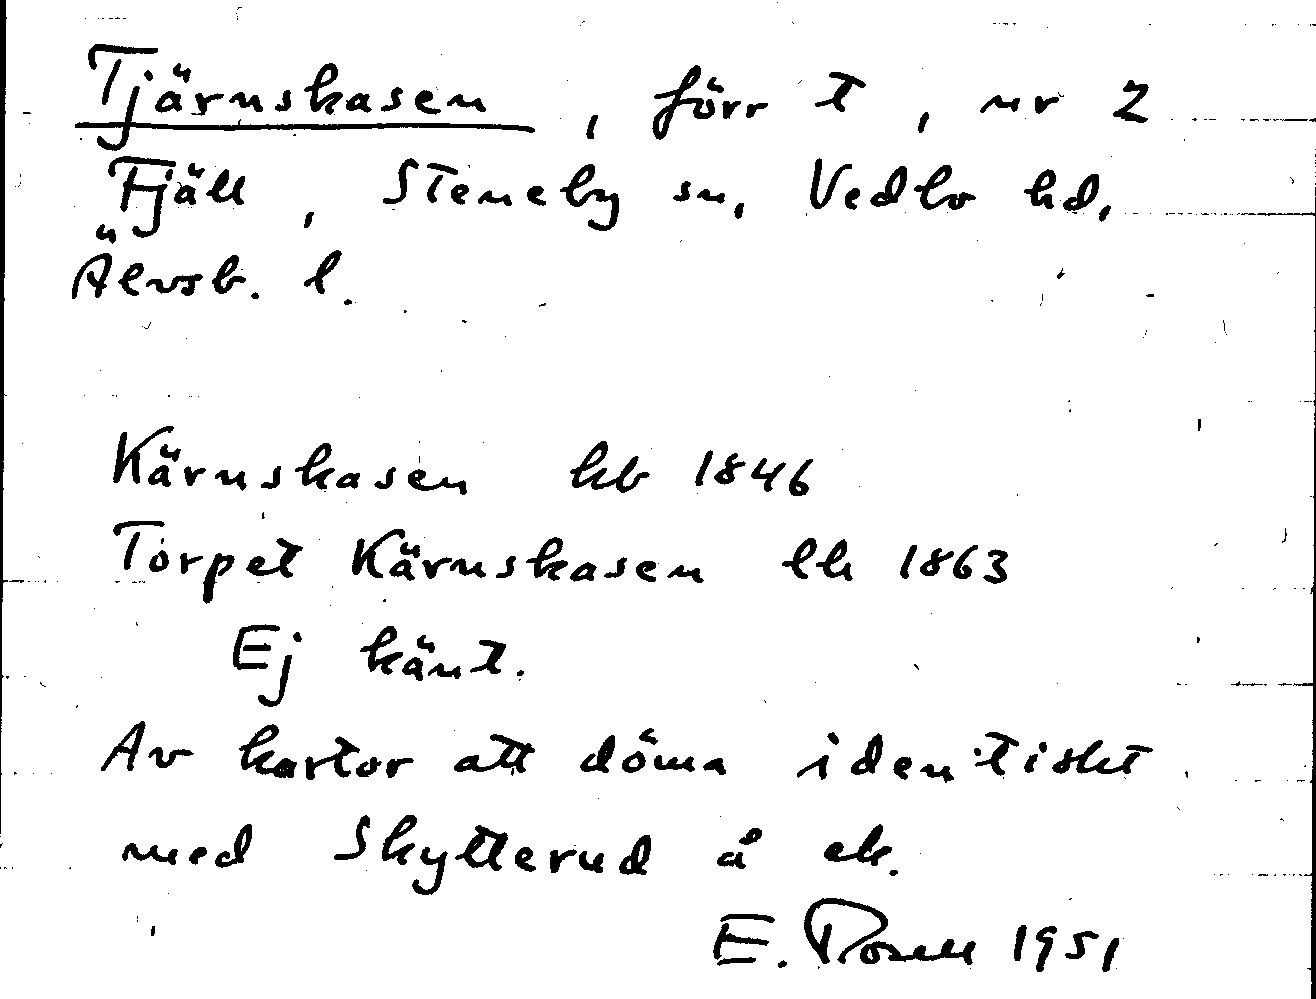 Tjärnskasen, förr t, nr 2
Fjäll, Steneby sn, Vedbo hd,
Älvsb. l.
Kärnskasen hb 1846
Torpet Kärnskasen lh 1863
Ej känt.
Av kartor att döma identiskt
med Skytterud å ek.
E. Rosell 1951